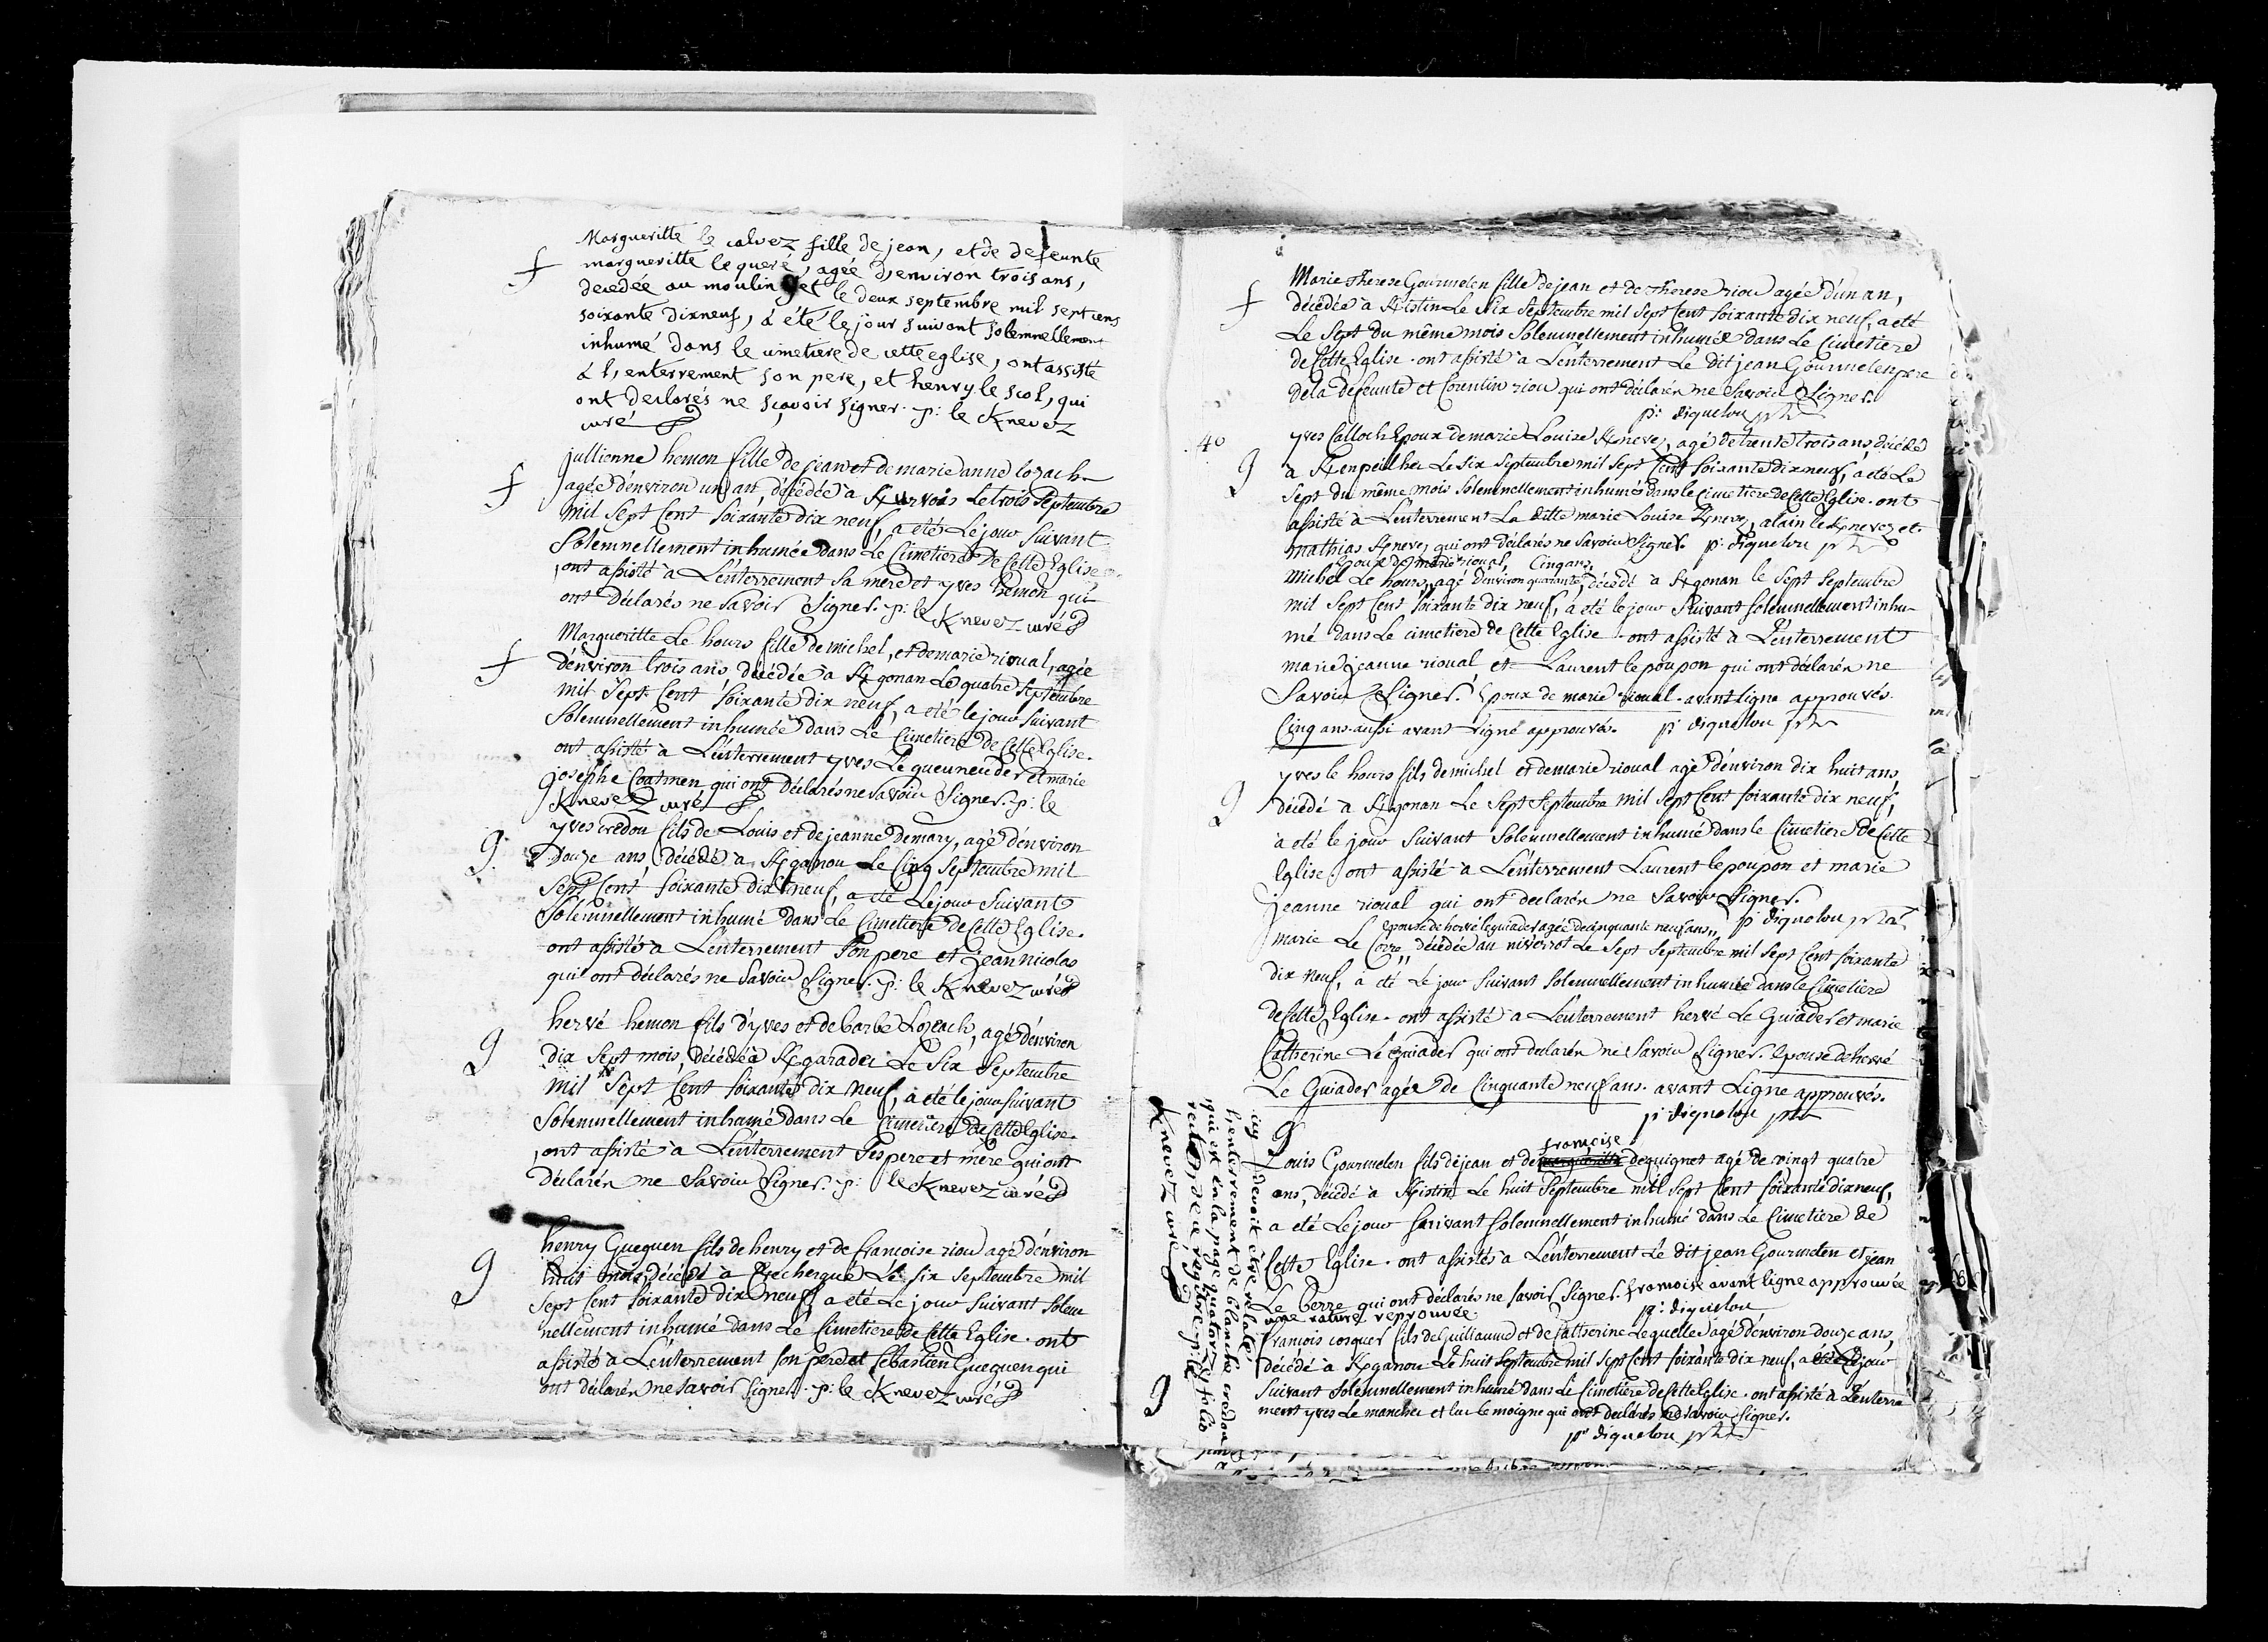 Margueritte le calvez fille de jean, et de defeunte
f
margueritte le queré, agée d'environ trois ans,
decedée au moulin get le deux septembre mil sept cens
soixante dixneuf, à été le jour suivant solemnellement
inhumé dans le cimetiere de cette eglise, ont assisté
à l'enterrement son pere, et henry le scol, qui
ont declarés ne sçavoir signer. p: le Knevez
curé
jullienne hemon fille de jean et de marie anne lozach
f
agée d'environ un an, décédée à Kurvois le trois Septembre
mil Sept Cent Soixante dix neuf, a eté Le jour Suivant
Solemnellement inhumée dans Le Cimetiere De Cette Eglise.
ont assisté à L'enterrement Sa mere et yves hemon qui
ont Déclarés ne Savoir Signer. p: le Knevez curé
Margueritte Le hours fille de michel, et de marie rioual, agée
f
d'environ trois ans, décédée à Kgonan Le quatre Septembre
mil Sept Cent Soixante dix neuf, a eté le jour Suivant
Solemnellement inhumée dans Le Cimetiere de Cette Eglise.
ont assisté à L'enterrement yves Le gueuneuder et marie
josephe Coatmen qui ont Déclarés ne Savoir Signer. p: le
Knevez curé
yves credou fils de Louis et de jeanne Demary, agé d'environ
g.
Douze ans, décédé à Kganou Le Cinq Septembre mil
Sept Cent Soixante dix neuf, a eté Le jour Suivant
Solemnellement inhumé dans Le Cimetiere de Cette Eglise.
ont assisté à L'enterrement Son pere et jean nicolas
qui ont déclarés ne Savoir Signer. p: le Knevez curé
hervé hemon fils d'yves et de barbe Lozach, agé d'environ
g
dix Sept mois, décédé à Kgaradec Le Six Septembre
mil Sept Cent Soixante dix neuf, a eté le jour Suivant
Solemnellement inhumé dans Le Cimetiere de Cette Eglise.
ont assisté à L'enterrement Ses pere et mere qui ont
Déclarén ne Savoir Signer. p: le Knevez curé
henry Gueguen fils de henry et de francoise riou agé d'environ
g
huit mois, décédé à Crechergué Le six Septembre mil
Sept Cent Soixante dix neuf, a eté Le jour Suivant Solem
nellement inhumé dans Le Cimetiere de Cette Eglise. ont
assisté à L'enterrement Son pere et Sebastien Gueguen qui
ont déclarén ne Savoir Signer. p: le Knevez curé
Marie Therese Gourmelen fille de jean et de Therese riou agée d'un an,
f
décédée à Kistin Le Six Septembre mil Sept Cent Soixante dix neuf, a eté
Le Sept du même mois Solemnellement inhumée dans Le Cimetiere
de Cette Eglise. ont assisté à L'enterrement Le dit jean Gourmelen pere
de la defeunte et Corentin riou qui ont déclarén ne Savoir Signer.
p: diquelou ptre
40
yves Calloch Epoux de marie Louise Knevez, agé de trente trois ans, décédé
g
à Kenpeilher Le Six Septembre mil Sept Cent Soixante dix neuf, a eté Le
Sept du même mois Solemnellement inhumé dans le Cimetiere de Cette Eglise. ont
assisté à L'enterrement La ditte marie Louise Knevez, alain le Knevez et
mathias Knevez qui ont déclarés ne Savoir Signer. p: diquelou ptre
Epoux de marie rioual, Cinq ans,
Michel Le hours, agé d'environ quarante, décédé à Kgonan le Sept Septembre
mil Sept Cent Soixante dix neuf, a eté le jour Suivant Solemnellement inhu-
mé dans Le cimetiere de Cette Eglise. ont assisté à L'enterrement
marie jeanne rioual et Laurent le poupon qui ont déclarén ne
Savoir Signer. Epoux de marie rioual. avant ligne approuvés.
Cinq ans aussi avant ligne approuvés. p: diquelou ptre
yves le hours fils de michel et de marie rioual agé d'environ dix huit ans,
g
décédé à Kgonan Le Sept Septembre mil Sept Cent Soixante dix neuf,
a eté le jour Suivant Solemnellement inhumé dans le Cimetiere de Cette
Eglise. ont assisté à L'enterrement Laurent le poupon et marie
jeanne rioual qui ont declarén ne Savoir Signer.
p: diquelou ptre
epouse de hervé le guiader agée de cinquante neuf ans,,
marie Le Corre,, décédée au niverrot Le Sept Septembre mil Sept Cent Soixante
dix neuf, a eté Le jour Suivant Solemnellement inhumée dans le Cimetiere
de Cette Eglise. ont assisté à L'enterrement hervé Le Guiader et marie
Catherine Le Guiader qui ont declarén ne Savoir Signer. Epouse de hervé
Le Guiader agée de Cinquante neuf ans. avant Ligne approuvés.
p: diquelou ptre
g
francoise
Louis Gourmelen fils de jean et de margueritte deguignet agé de vingt quatre
ans, décédé à Kistin Le huit Septembre mil Sept Cent Soixante dix neuf,
a eté Le jour Suivant Solemnellement inhumé dans Le Cimetiere de
Cette Eglise. ont assistés à L'enterrement Le dit jean Gourmelen et jean
Le berre qui ont déclarés ne Savoir Signer. francoise avant ligne approuvée
une rature reprouvée. p: diquelou
francois cosquer fils de Guillaume et de Catherine Le quelle agé d'environ Douze ans,
décédé à Kganou Le huit Septembre mil Sept Cent Soixante dix neuf, a été Le jour
g
Suivant Solemnellement inhumé dans Le Cimetiere de Cette Eglise. ont assisté à L'enterre
ment yves Le mancher et luc le moigne qui ont declarés ne Savoir Signer.
p: diquelou ptre
icy devoit être relaté
l'enterrement de blanche credou
qui est en la page quatorze, folio
recto, de ce registre. p: le
Knevez curé